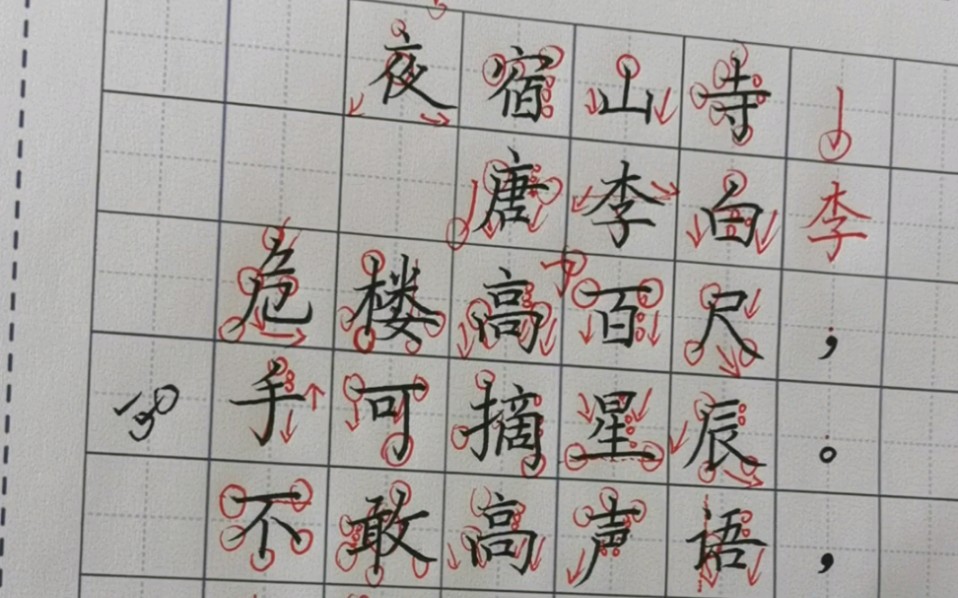 夜宿山寺
唐李白李
危楼高百尺；
手可摘星辰。
不敢高声语，